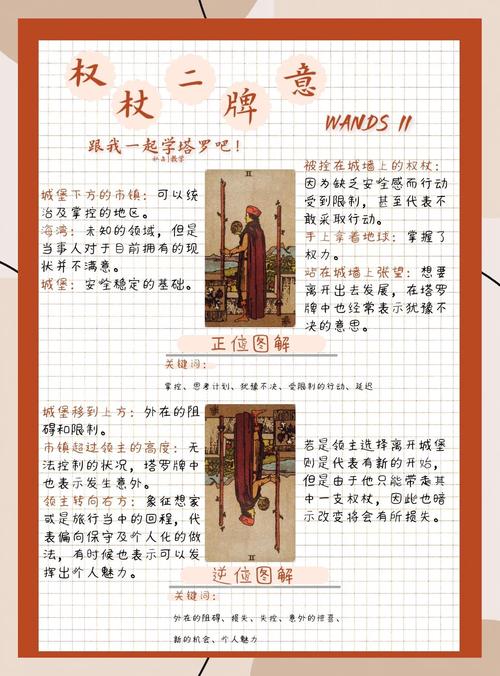 权杖二牌意
WANDS II
跟我一起学塔罗吧!
私占|教学
城堡下方的市镇:可以统
治及掌控的地区。
海湾:未知的领域,但是
当事人对于目前拥有的现
状并不满意。
城堡:安全稳定的基础。
II
被拴在城墙上的权杖:
因为缺乏安全感而行动
受到限制,甚至代表不
敢采取行动。
手上拿着地球:掌握了
权力。
站在城墙上张望:想要
离开出去发展,在塔罗
牌中也经常表示犹豫不
决的意思。
正位图解
关键词:
掌控、思考计划、犹豫不决、受限制的行动、延迟
城堡移到上方:外在的阻
碍和限制。
市镇超过领主的高度:无
法控制的状况,塔罗牌中
也表示发生意外。
领主转向右方:象征想家
或是旅行当中的回程,代
表偏向保守及个人化的做
法,有时候也表示可以发
挥出个人魅力。
II
若是领主选择离开城堡
则是代表有新的开始,
但是由于他只能带走其
中一支权杖,因此也暗
示改变将会有所损失。
逆位图解
关键词:
外在的阻碍、损失、失控、意外的惊喜、
新的机会、个人魅力